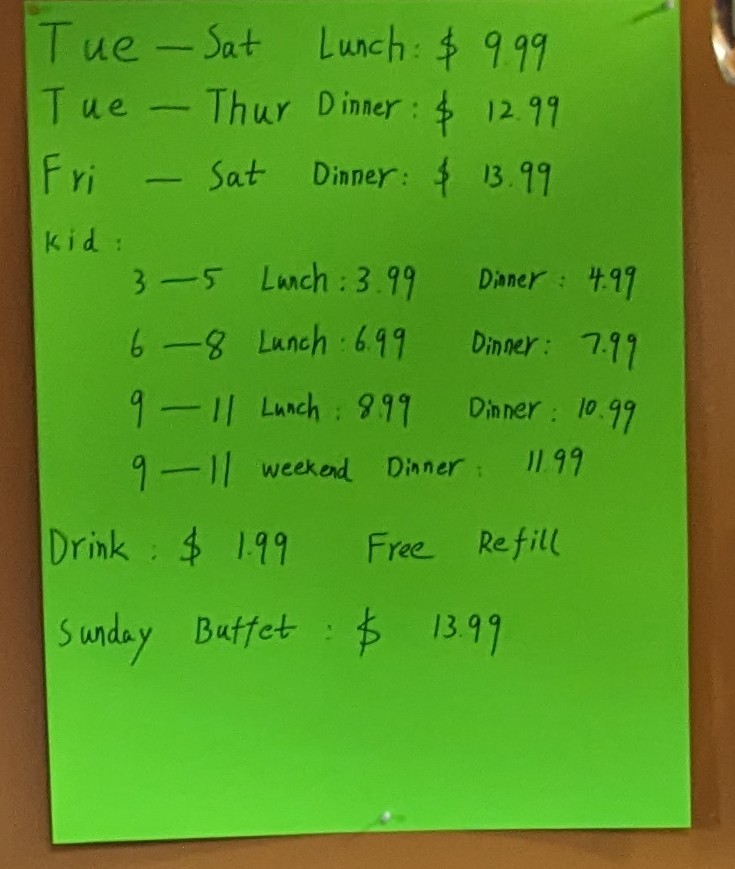 Tue – Sat Lunch: $ 9.99
Tue – Thur Dinner: $ 12.99
Fri – Sat Dinner: $ 13.99
Kid:
3 – 5 Lunch: 3.99 Dinner: 4.99
6 – 8 Lunch: 6.99 Dinner: 7.99
9 – 11 Lunch: 8.99 Dinner: 10.99
9 – 11 weekend Dinner: 11.99
Drink: $ 1.99 Free Refill
Sunday Buffet: $ 13.99